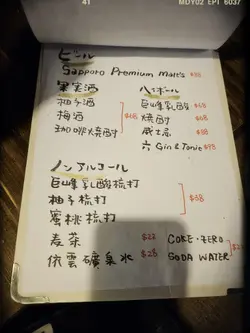 41
MDY02 EPT 6037
ビール
Sapporo Premium Malt's
果実酒 ハイボール
柚子酒 巨峰乳酸 $68
梅酒 $68 焼酎 $68
珈啡燒酎 威士忌
六 Gin & Tonic $98
ノンアルコール
巨峰乳酸梳打
柚子梳打 $38
蜜桃梳打
麦茶 $22 COKE·ZERO
依雲礦泉水 $28 SODA WATER